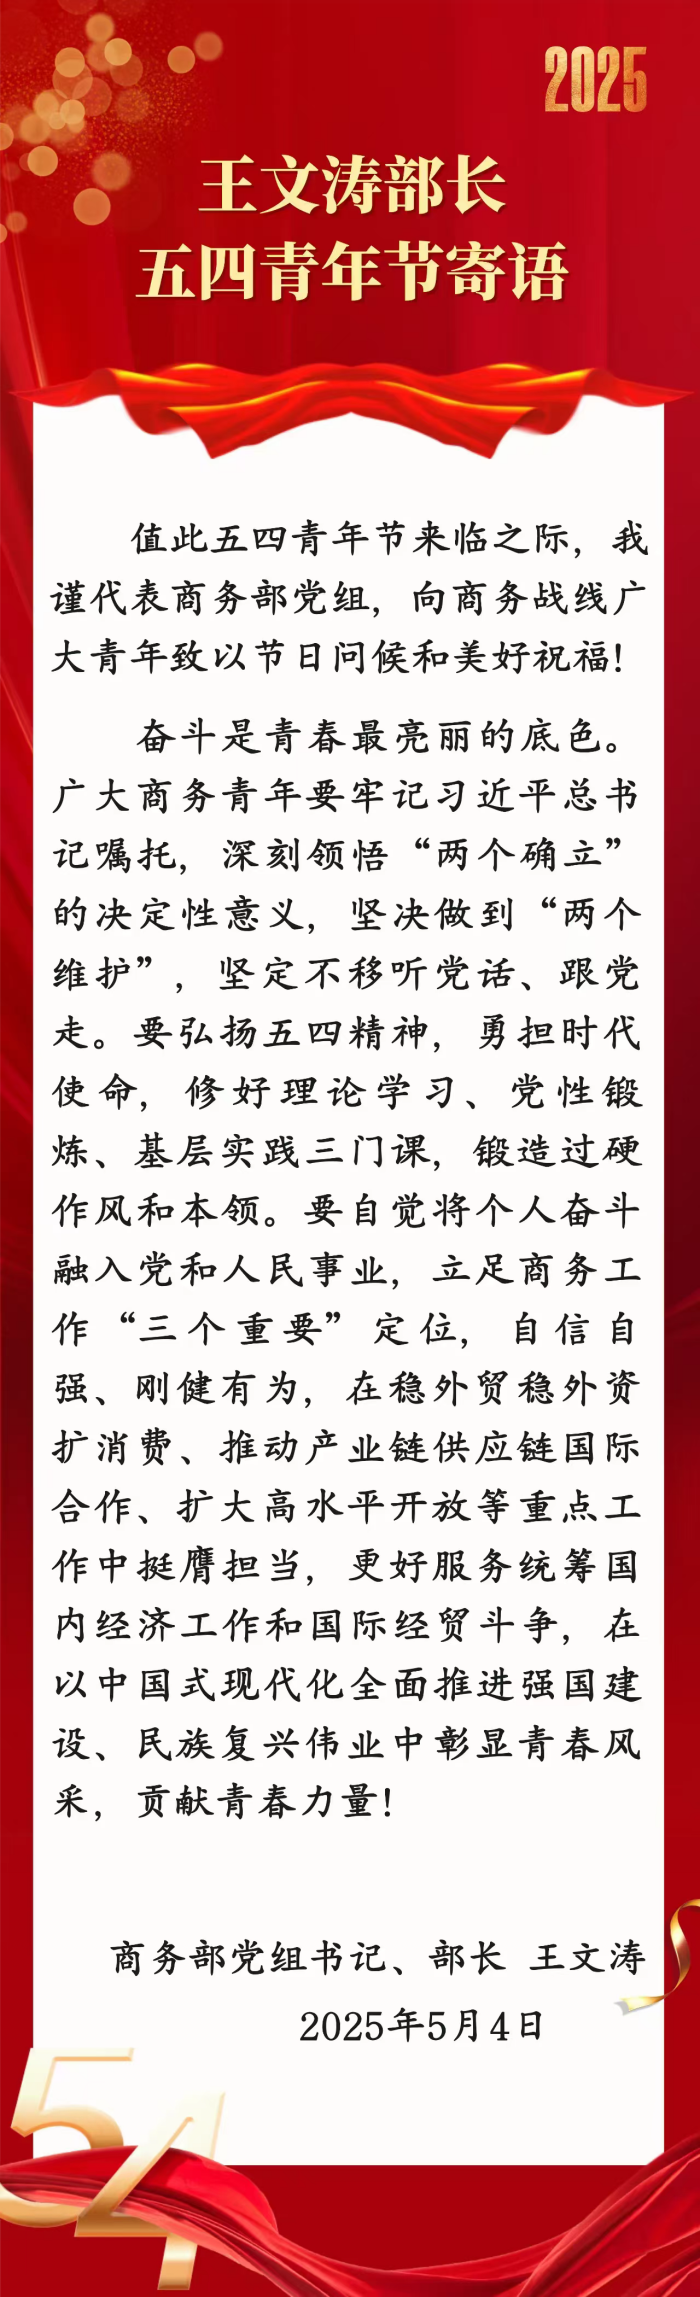 2025
王文涛部长
五四青年节寄语
值此五四青年节来临之际，我
谨代表商务部党组，向商务战线广
大青年致以节日问候和美好祝福！
奋斗是青春最亮丽的底色。
广大商务青年要牢记习近平总书
记嘱托，深刻领悟“两个确立”
的决定性意义，坚决做到“两个
维护”，坚定不移听党话、跟党
走。要弘扬五四精神，勇担时代
使命，修好理论学习、党性锻
炼、基层实践三门课，锻造过硬
作风和本领。要自觉将个人奋斗
融入党和人民事业，立足商务工
作“三个重要”定位，自信自
强、刚健有为，在稳外贸稳外资
扩消费、推动产业链供应链国际
合作、扩大高水平开放等重点工
作中挺膺担当，更好服务统筹国
内经济工作和国际经贸斗争，在
以中国式现代化全面推进强国建
设、民族复兴伟业中彰显青春风
采，贡献青春力量！
商务部党组书记、部长 王文涛
2025年5月4日
54